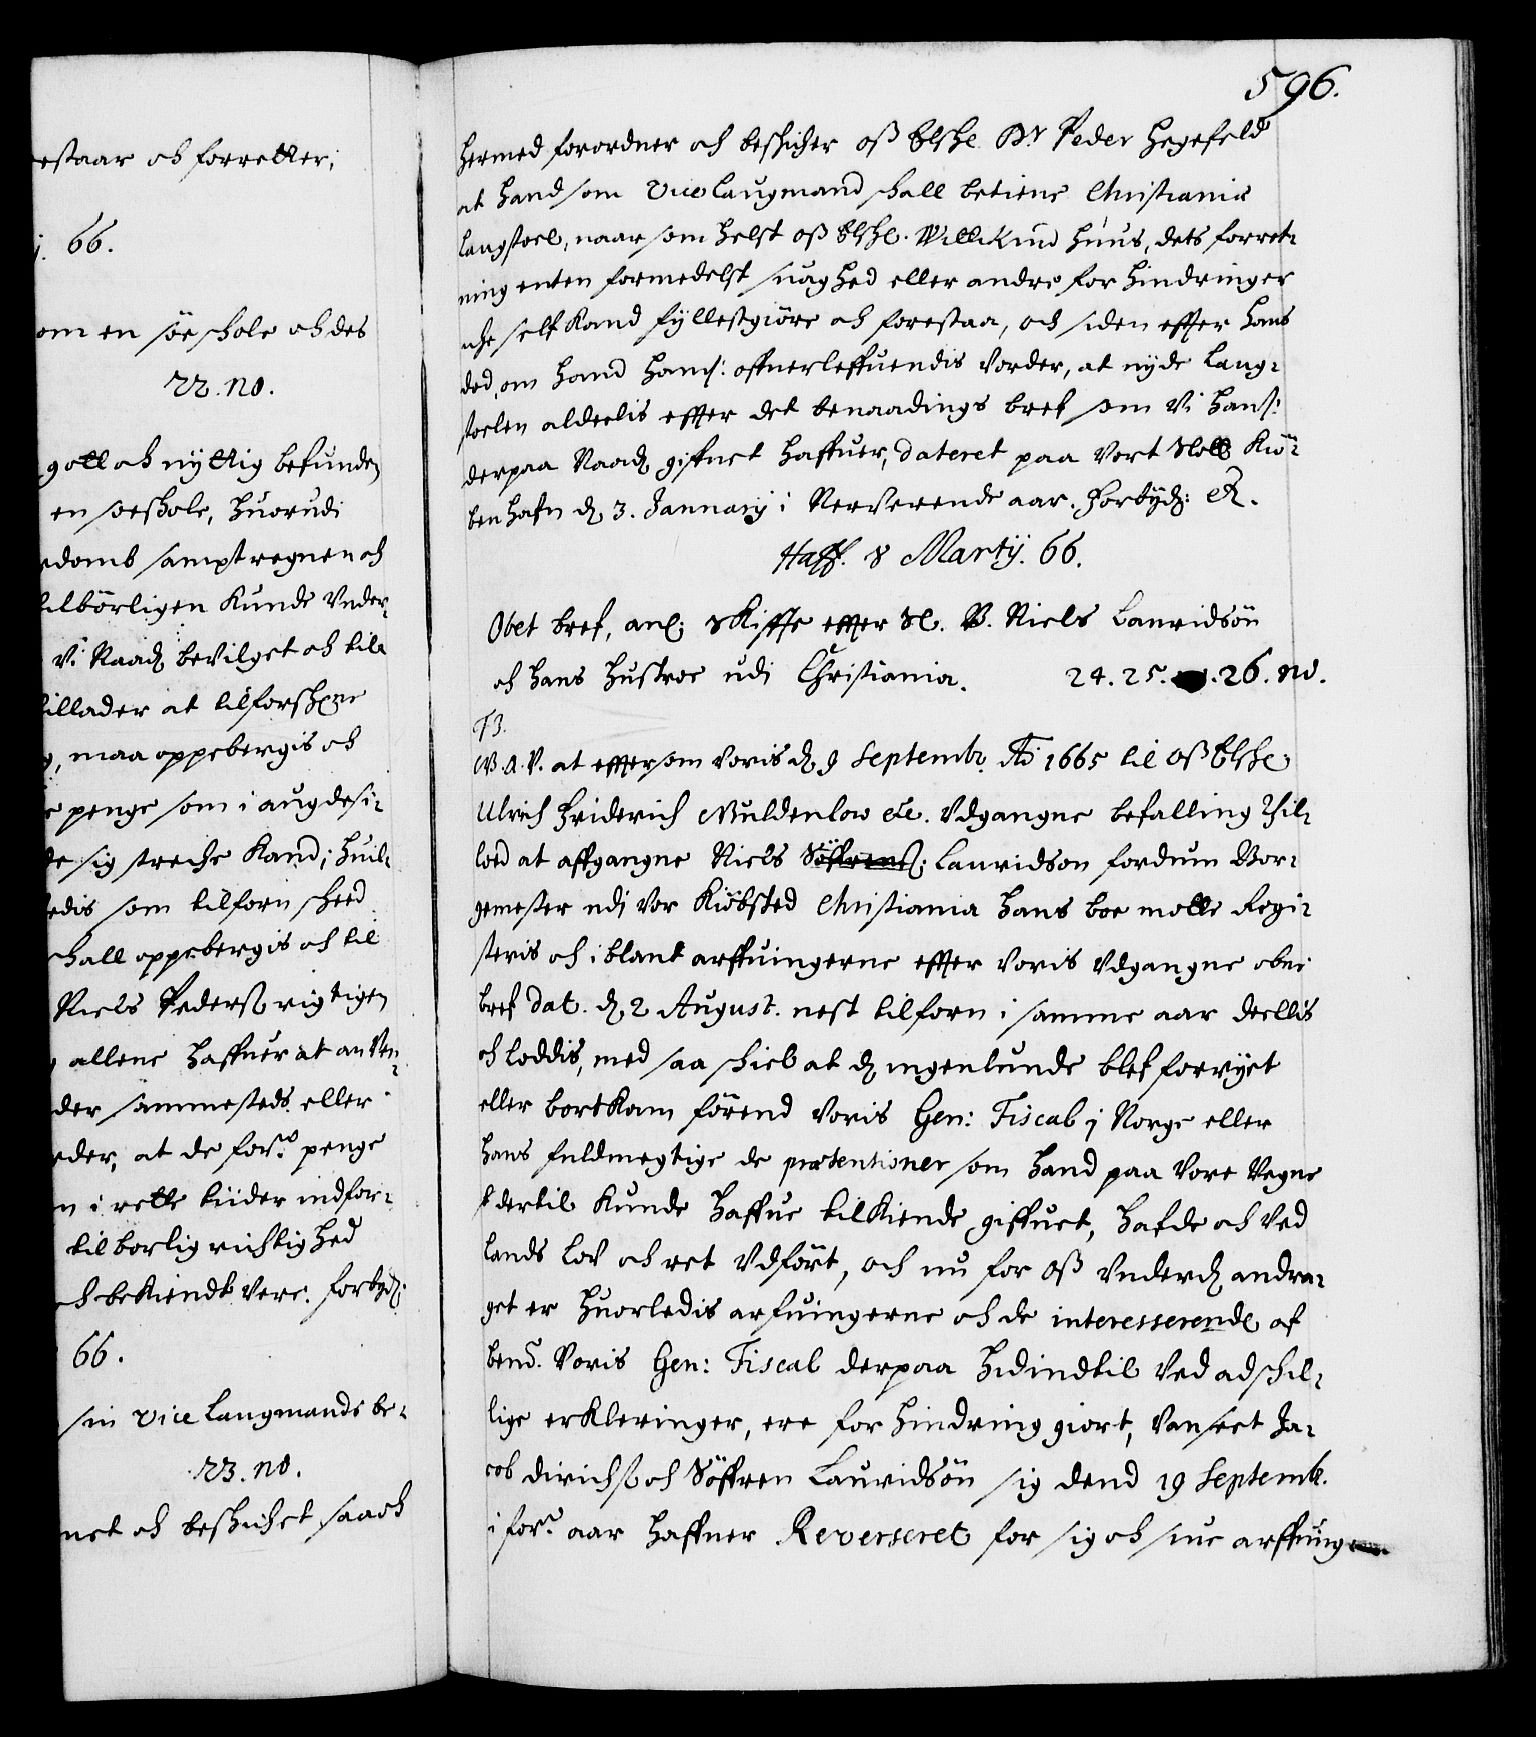 estaar och forretter;
66.
om en söe schole och des
22. no.
gott och nyttig befunden
en söeschole, huorudi
domb sampt regnen och
tilbörligen kunde under¬
Vi Naad: bevilget och tila
tillader at tilforschne
, maa oppebergis och
penge som i augdesi¬
de sig streche kand; huil¬
ledis som tilforn scheed
schall oppebergis och til
Niels Pederss: rigtigen
allene haffuer at anven¬
der sammesteds eller
eder, at de for:ne penge
n i rette tiider indfor¬
tilborlig richtighed
och bekiendt vere. forbyd:
66.
sin vice Laugmands be¬
23. no.
net och beschichet saa och
596.
hermed forordner och beschicher oss Elshe. Dr. Peder Hegefeld
at hand som vice Laugmand schall betiene Christaniæ
Laugstoel, naar som helst oss Elshe. Willikind Huus, dets forret¬
ning enten formedelst suaghed eller andre forhindringer
iche self kand fyllestgiöre och forestaa, och siden effter hans
död, om hand hans: offuerleffuendis vorder, at nyde Laug¬
stoelen aldeelis effter det benaadings bref som Vi hans:
derpaa Naad: giffuet haffuer, dateret paa vort Slott Kiö¬
benhafn d. 3. January i Nerverende aar. Forbyd: etc.
Haff. 8 Martij. 66.
Obet bref, anl: Skiffte effter Sl. B. Niels Lauridsön
och hans hustroe udi Christiania. 24. 25. 26. no.
F3.
W. A. V. at effter som voris d. 9 Septembr. Ao 1665 til oss Elshe:
Ulrich Friderich Guldenlow etc. Udgangne befalling Thil¬
loed at affgangne Niels Söffrens: Lauridson fordum Bor¬
gemester udi vor Kiöbsted Christiania hans boe motte Regi¬
steris och iblant arffuingerne effter voris udgangne obne
bref dat. d. 2 August. nest tilforn i samme aar deellis
och loddis, med saa schiel at d: ingenlunde blef forryct
eller bortkam förend voris Gen: Fiscal i Norge eller
hans fuldmegtige de prætentioner som hand paa vore vegne
dertil kunde haffue tilkiende giffuet, hafde och ved
lands lov och ret udfört, och nu for oss underd: andra¬
get er huorledis arfuingerne och de interesserende af
bend:. voris Gen: Fiscal derpaa hidindtil ved adschil¬
lige erkleringer, ere forhindring giort, Uanseet Ja¬
cob Dirichss: och Söffren Lauridsön sig dend 19 Septemb.
i for:ne aar haffuer Reverseret for sig och sine arffuing